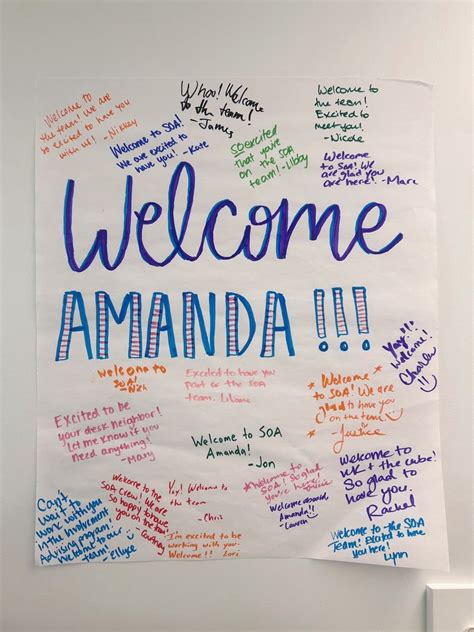 Welcome to
the team! We are
so excited to have you
with us! - Nikkey
Whoo! Welcome
to the team!
- James
Welcome to
the team!
Excited to
meet you!
- Nicole
Welcome to SOA!
We are excited to
have you! - Kate
SO excited
that you're
on the SOA
team! - Libby
Welcome
to SOA! We
are glad you
are here! - Marc
Welcome
AMANDA!!!
Yay!!!
Welcome!
Charlee
Welcome to
SOA!
Excited to have you
part of the SOA
team.
Welcome
to SOA! We are
glad to have you
on the team
- Justice
Excited to be
your desk neighbor!
Let me know if you
need anything!
- Mary
Welcome to SOA
Amanda!
- Jon
Welcome to
UK + the cube!
So glad to
have you.
Rachel
Can't
wait to
work with you
in the Involvement
Advising program!
Welcome to our
team! - Ellyce
Welcome to the
SOA Crew! We are
so happy to have
you on the team!
Courtney
Yay! Welcome to
the team
- Chris
Welcome to
SOA! So glad
you're here!
Welcome aboard,
Amanda!!
- Lauren
I'm excited to be
working with you.
Welcome!! Lori
Welcome to the SOA
Team! Excited to have
you here!
Lynn